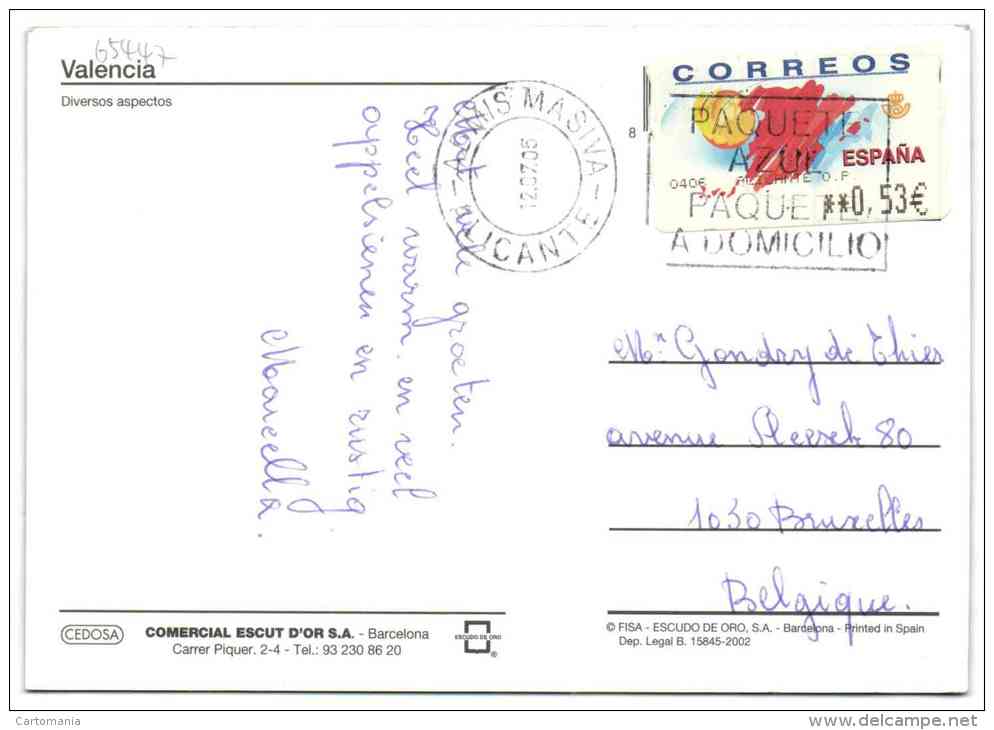 65447
Valencia
Diversos aspectos
Met vele groeten.
Heel warm. en veel
appelsienen en rustig
Marcella.
MASIVA - ALICANTE -
12.07.05
8
CORREOS
ESPAÑA
0406 ALICANTE O.P.
**0,53€
PAQUETE
AZUL
PAQUETE
A DOMICILIO
Gondry de Thier
avenue 80
1030 Bruxelles
Belgique.
CEDOSA
COMERCIAL ESCUT D'OR S.A. - Barcelona
Carrer Piquer. 2-4 - Tel.: 93 230 86 20
ESCUDO DE ORO
®
© FISA - ESCUDO DE ORO, S.A. - Barcelona - Printed in Spain
Dep. Legal B. 15845-2002
Cartomania
www.delcampe.net